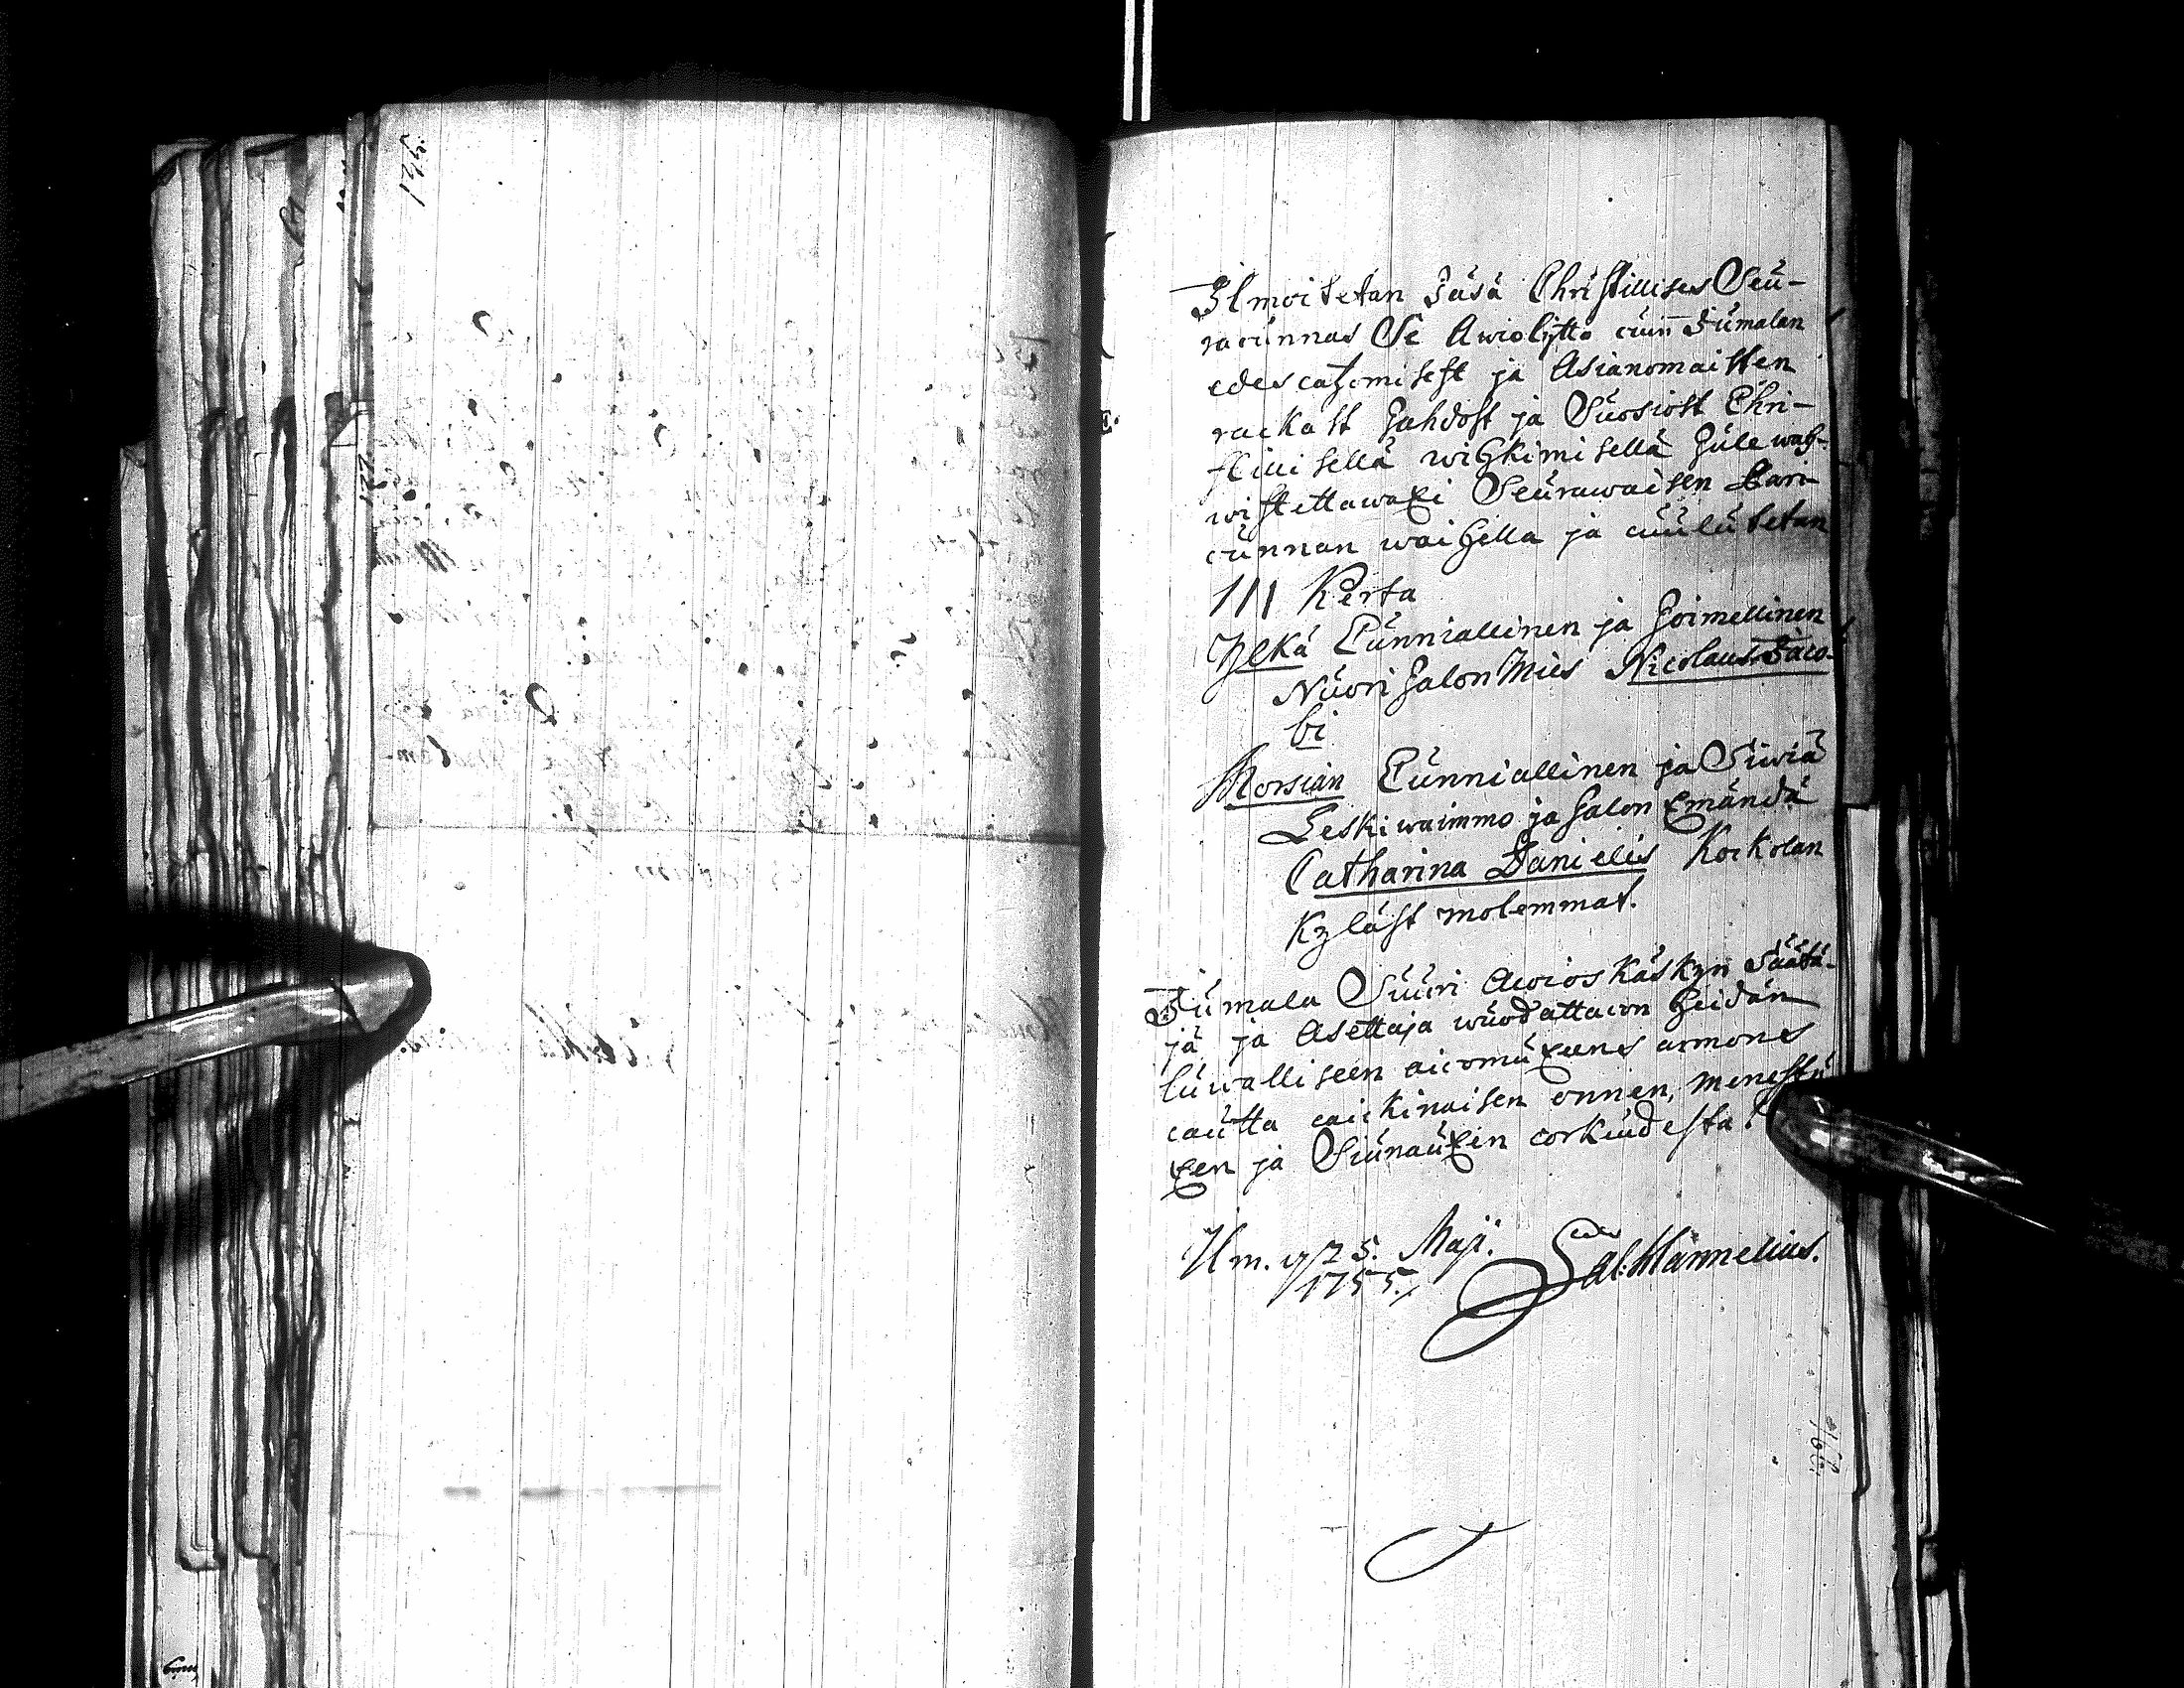 Ilmoitetan Täsä Christillises Seu-
racunnas Se Awiolijtto cuin Jumalan
edescatzomisest ja Asianomaisten
rackast Tahdost ja Suosiost Chri-
stillisellä wihkimisellä Tule wah-
wistettawaxi Seurawaisen Pari-
cunnan waihella ja cuulutetan
III Kerta
Ylkä Cunniallinen ja Toimellinen
Nuori Talon Mies Nicolaus Jaco-
bi
Morsian Cunniallinen ja Siwiä
Leskiwaimmo ja Talon Emändä
Catharina Danielis Kockolan
Kyläst molemmat.
Jumala Suuri Awios Käskyn Säätä-
jä ja Asettaja wuodattacon heidän
luwalliseen aicomuxeens armons
cautta caickinaisen onnen, menestü
xen ja Siunauxin corkiudesta!
Ulm. 25. Maji.
1755.
Sal: Mannelius.